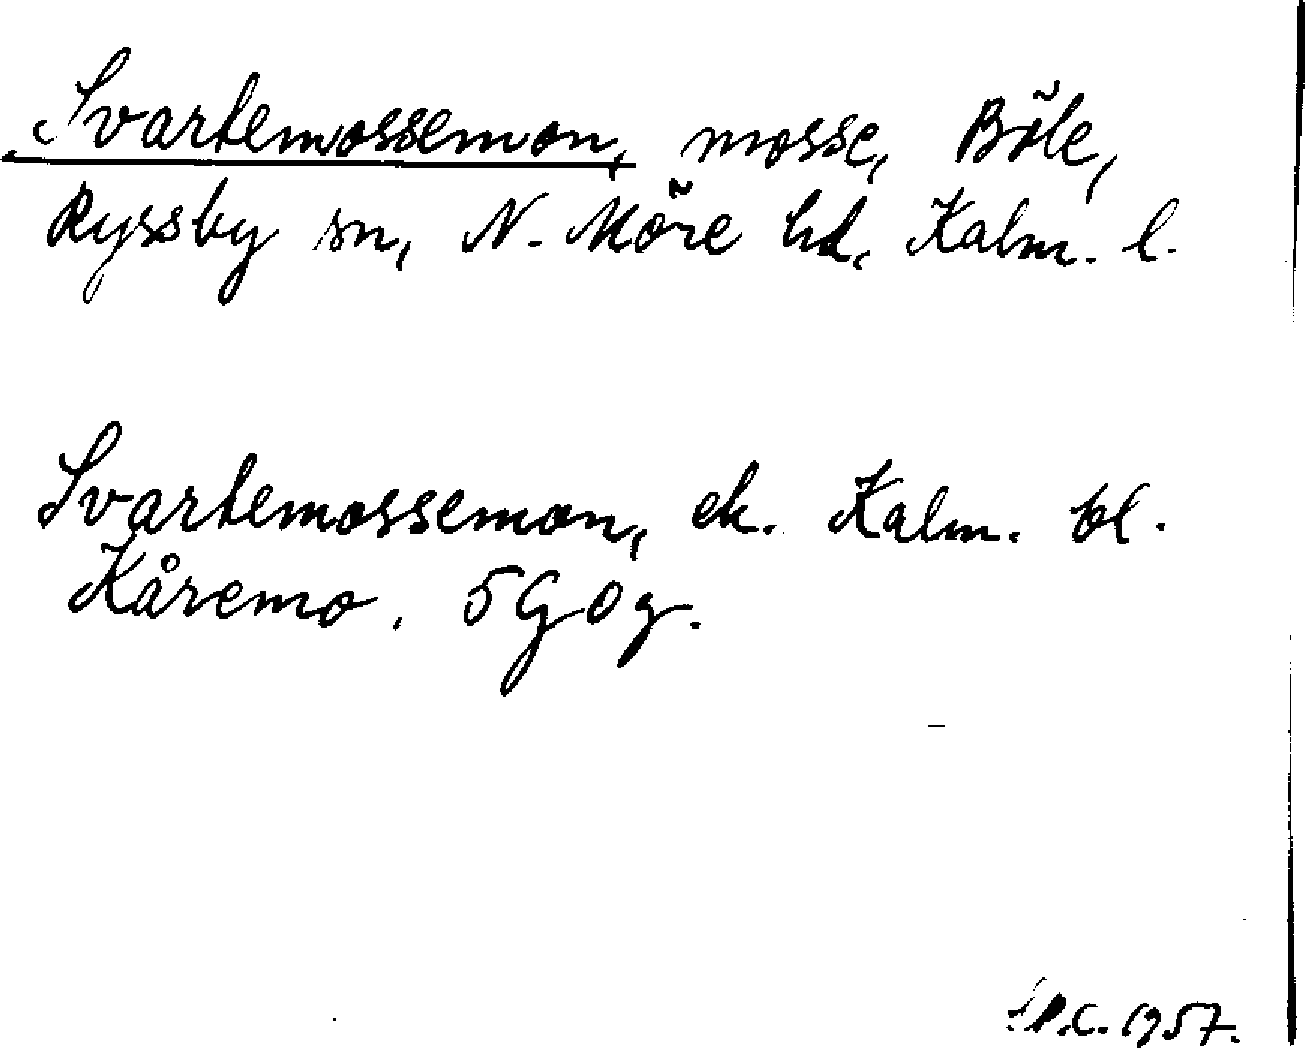 Svartemossemon, mosse, Böle,
Ryssby sn, N. Möre hd, Kalm. l.
Svartemossemon, ek. Kalm. bl.
Kåremo. 5G0g.
P.C. 1957.